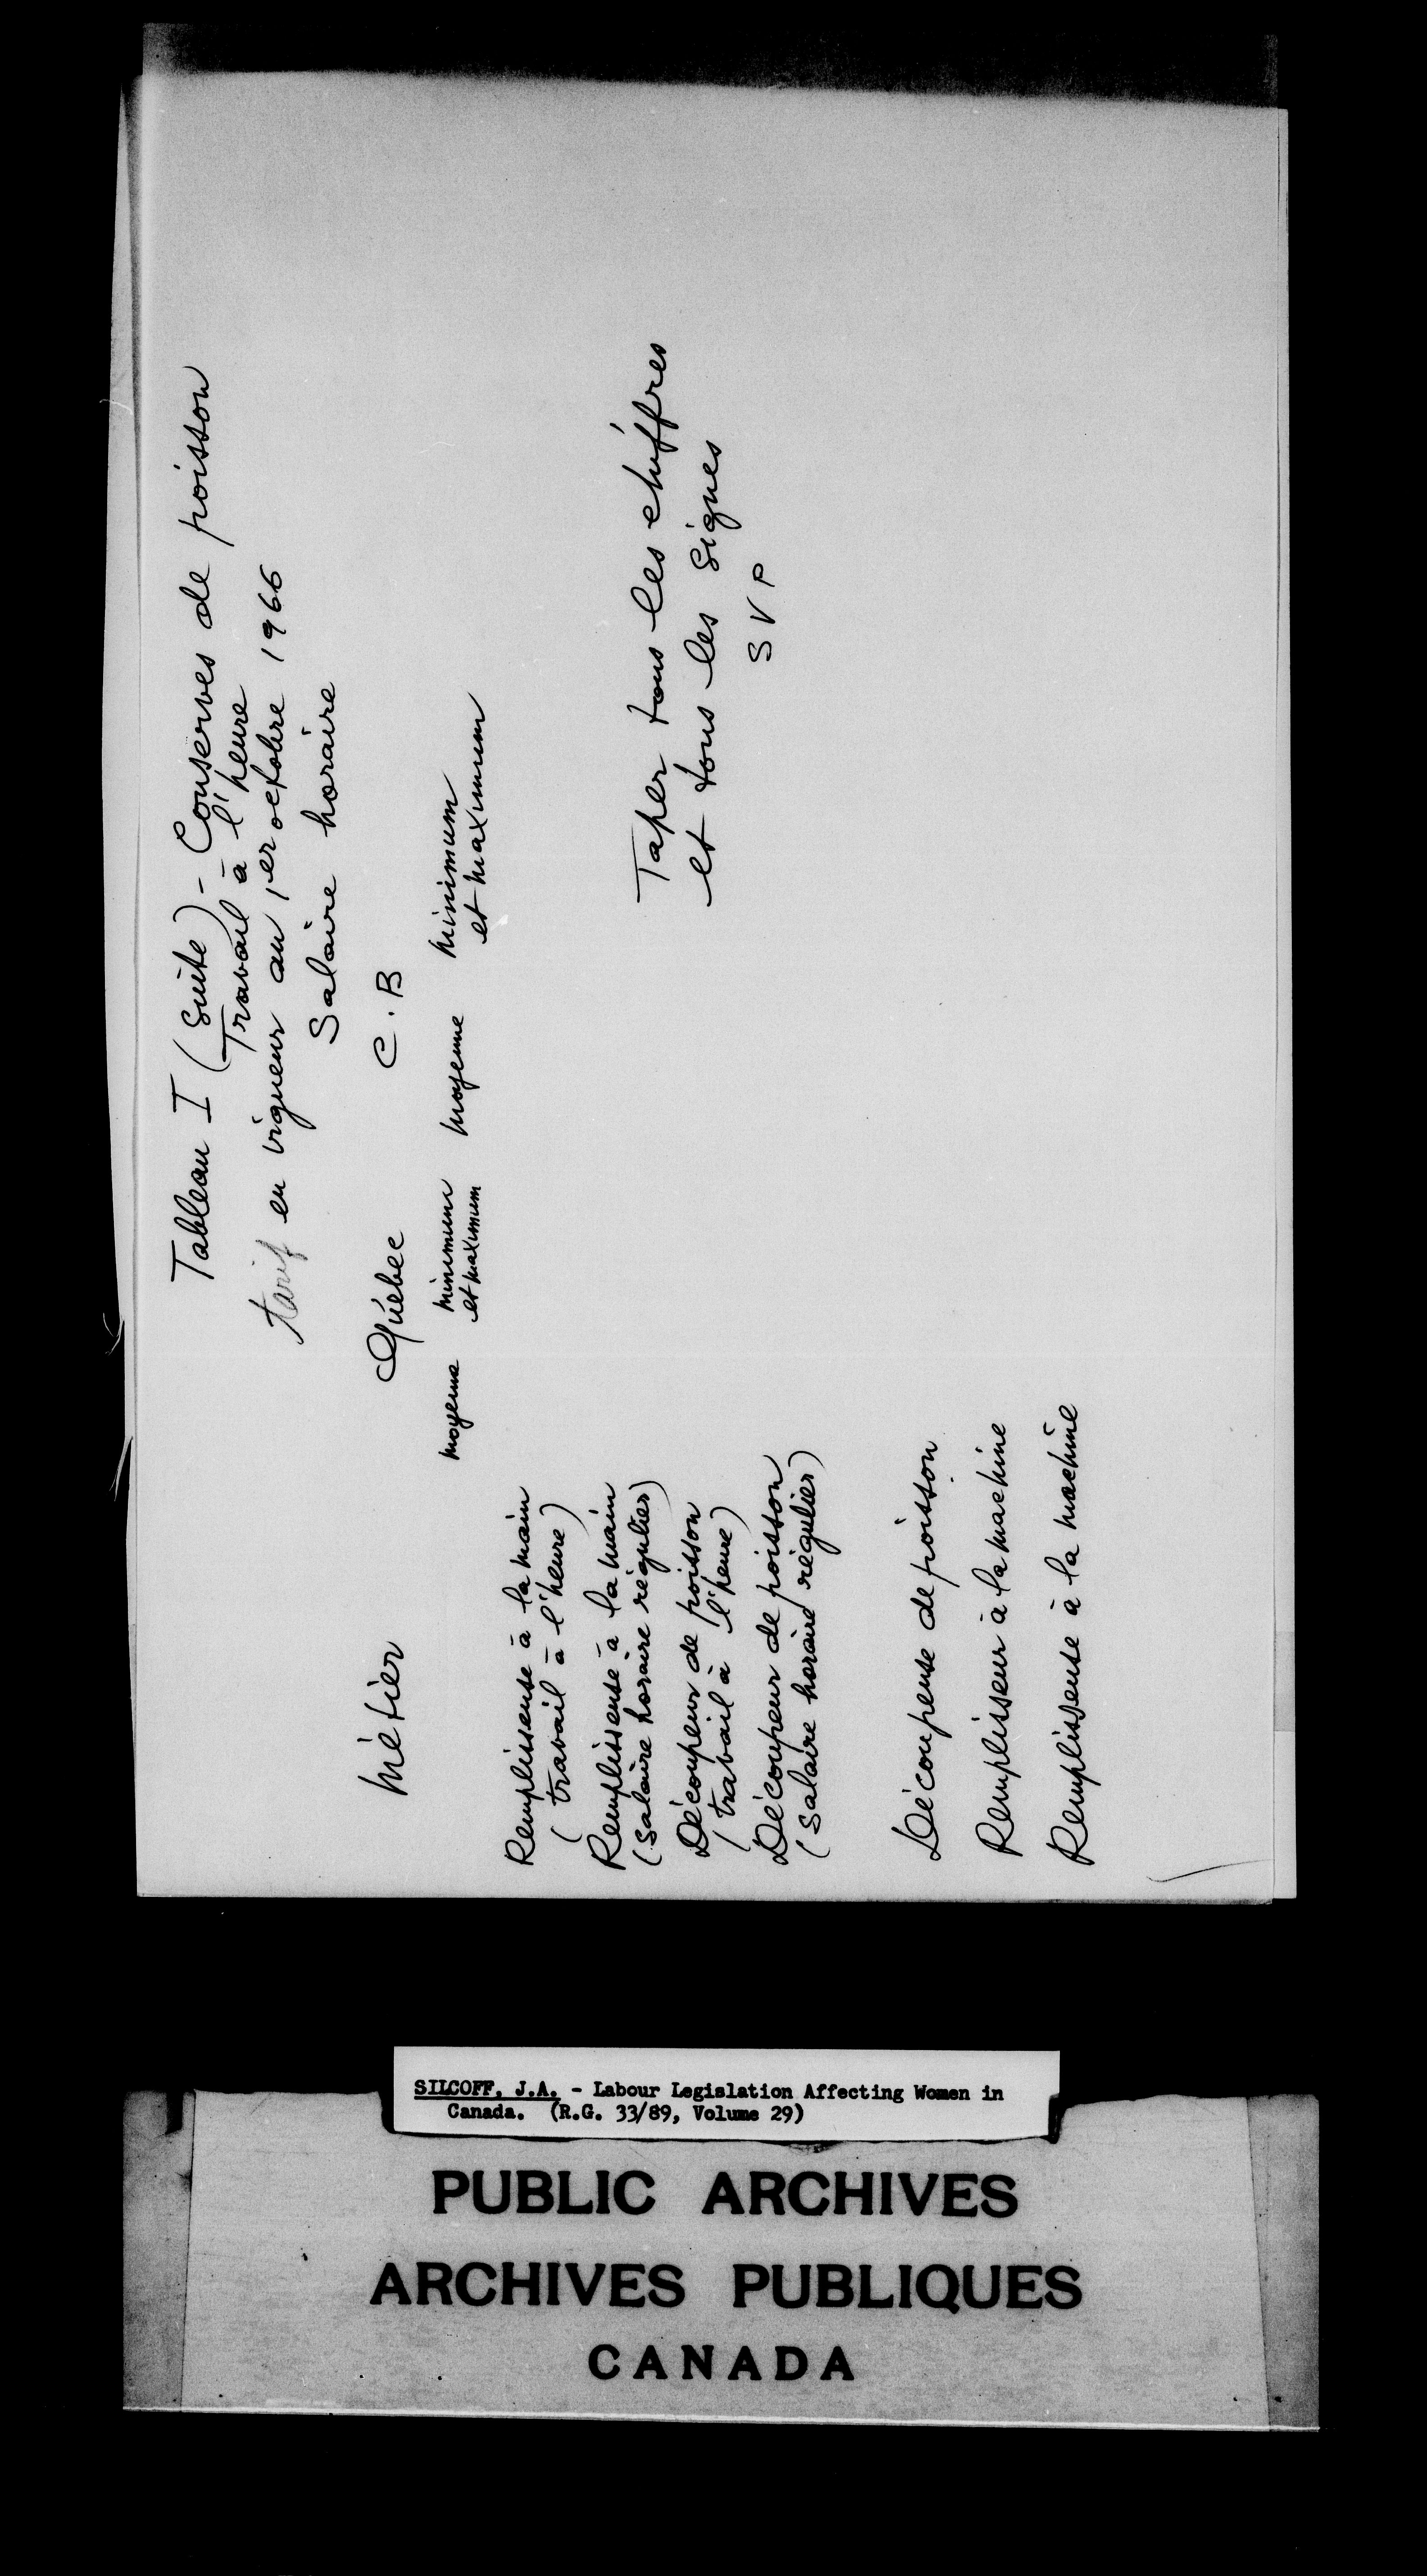 Tableau I (suite) - Conserves de poisson
Travail à l'heure
tarif en vigueur au 1er octobre 1966
Salaire horaire
Métier Québec C.B
moyenne minimum moyenne minimum
et maximum et maximum
Remplisseuse à la main
(travail à l'heure)
Remplisseuse à la main
(salaire horaire régulier)
Découpeur de poisson
(travail à l'heure)
Découpeur de poisson
(salaire horaire régulier)
Taper tous les chiffres
et tous les signes
SVP
Découpeuse de poisson
Remplisseur à la machine
Remplisseuse à la machine
SILCOFF, J.A. - Labour Legislation Affecting Women in
Canada. (R.G. 33/89, Volume 29)
PUBLIC ARCHIVES
ARCHIVES PUBLIQUES
CANADA